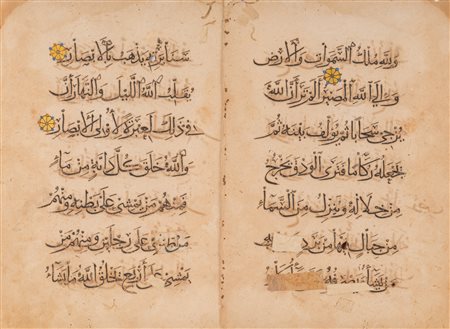 ولله ملك السموات والارض
والى الله المصير الم تر ان الله
يزجي سحابا ثم يؤلف بينه ثم
يجعله ركاما فترى الودق يخرج
من خلاله وينزل من السماء
من جبال فيها من برد
من يشاء ويصرفه
سنا برقه يذهب بالابصار
يقلب الله الليل والنهار ان
في ذلك لعبرة لاولي الابصار
والله خلق كل دابة من ماء
فمنهم من يمشي على بطنه ومنهم
من يمشي على رجلين ومنهم من
يمشي على اربع يخلق الله ما يشاء